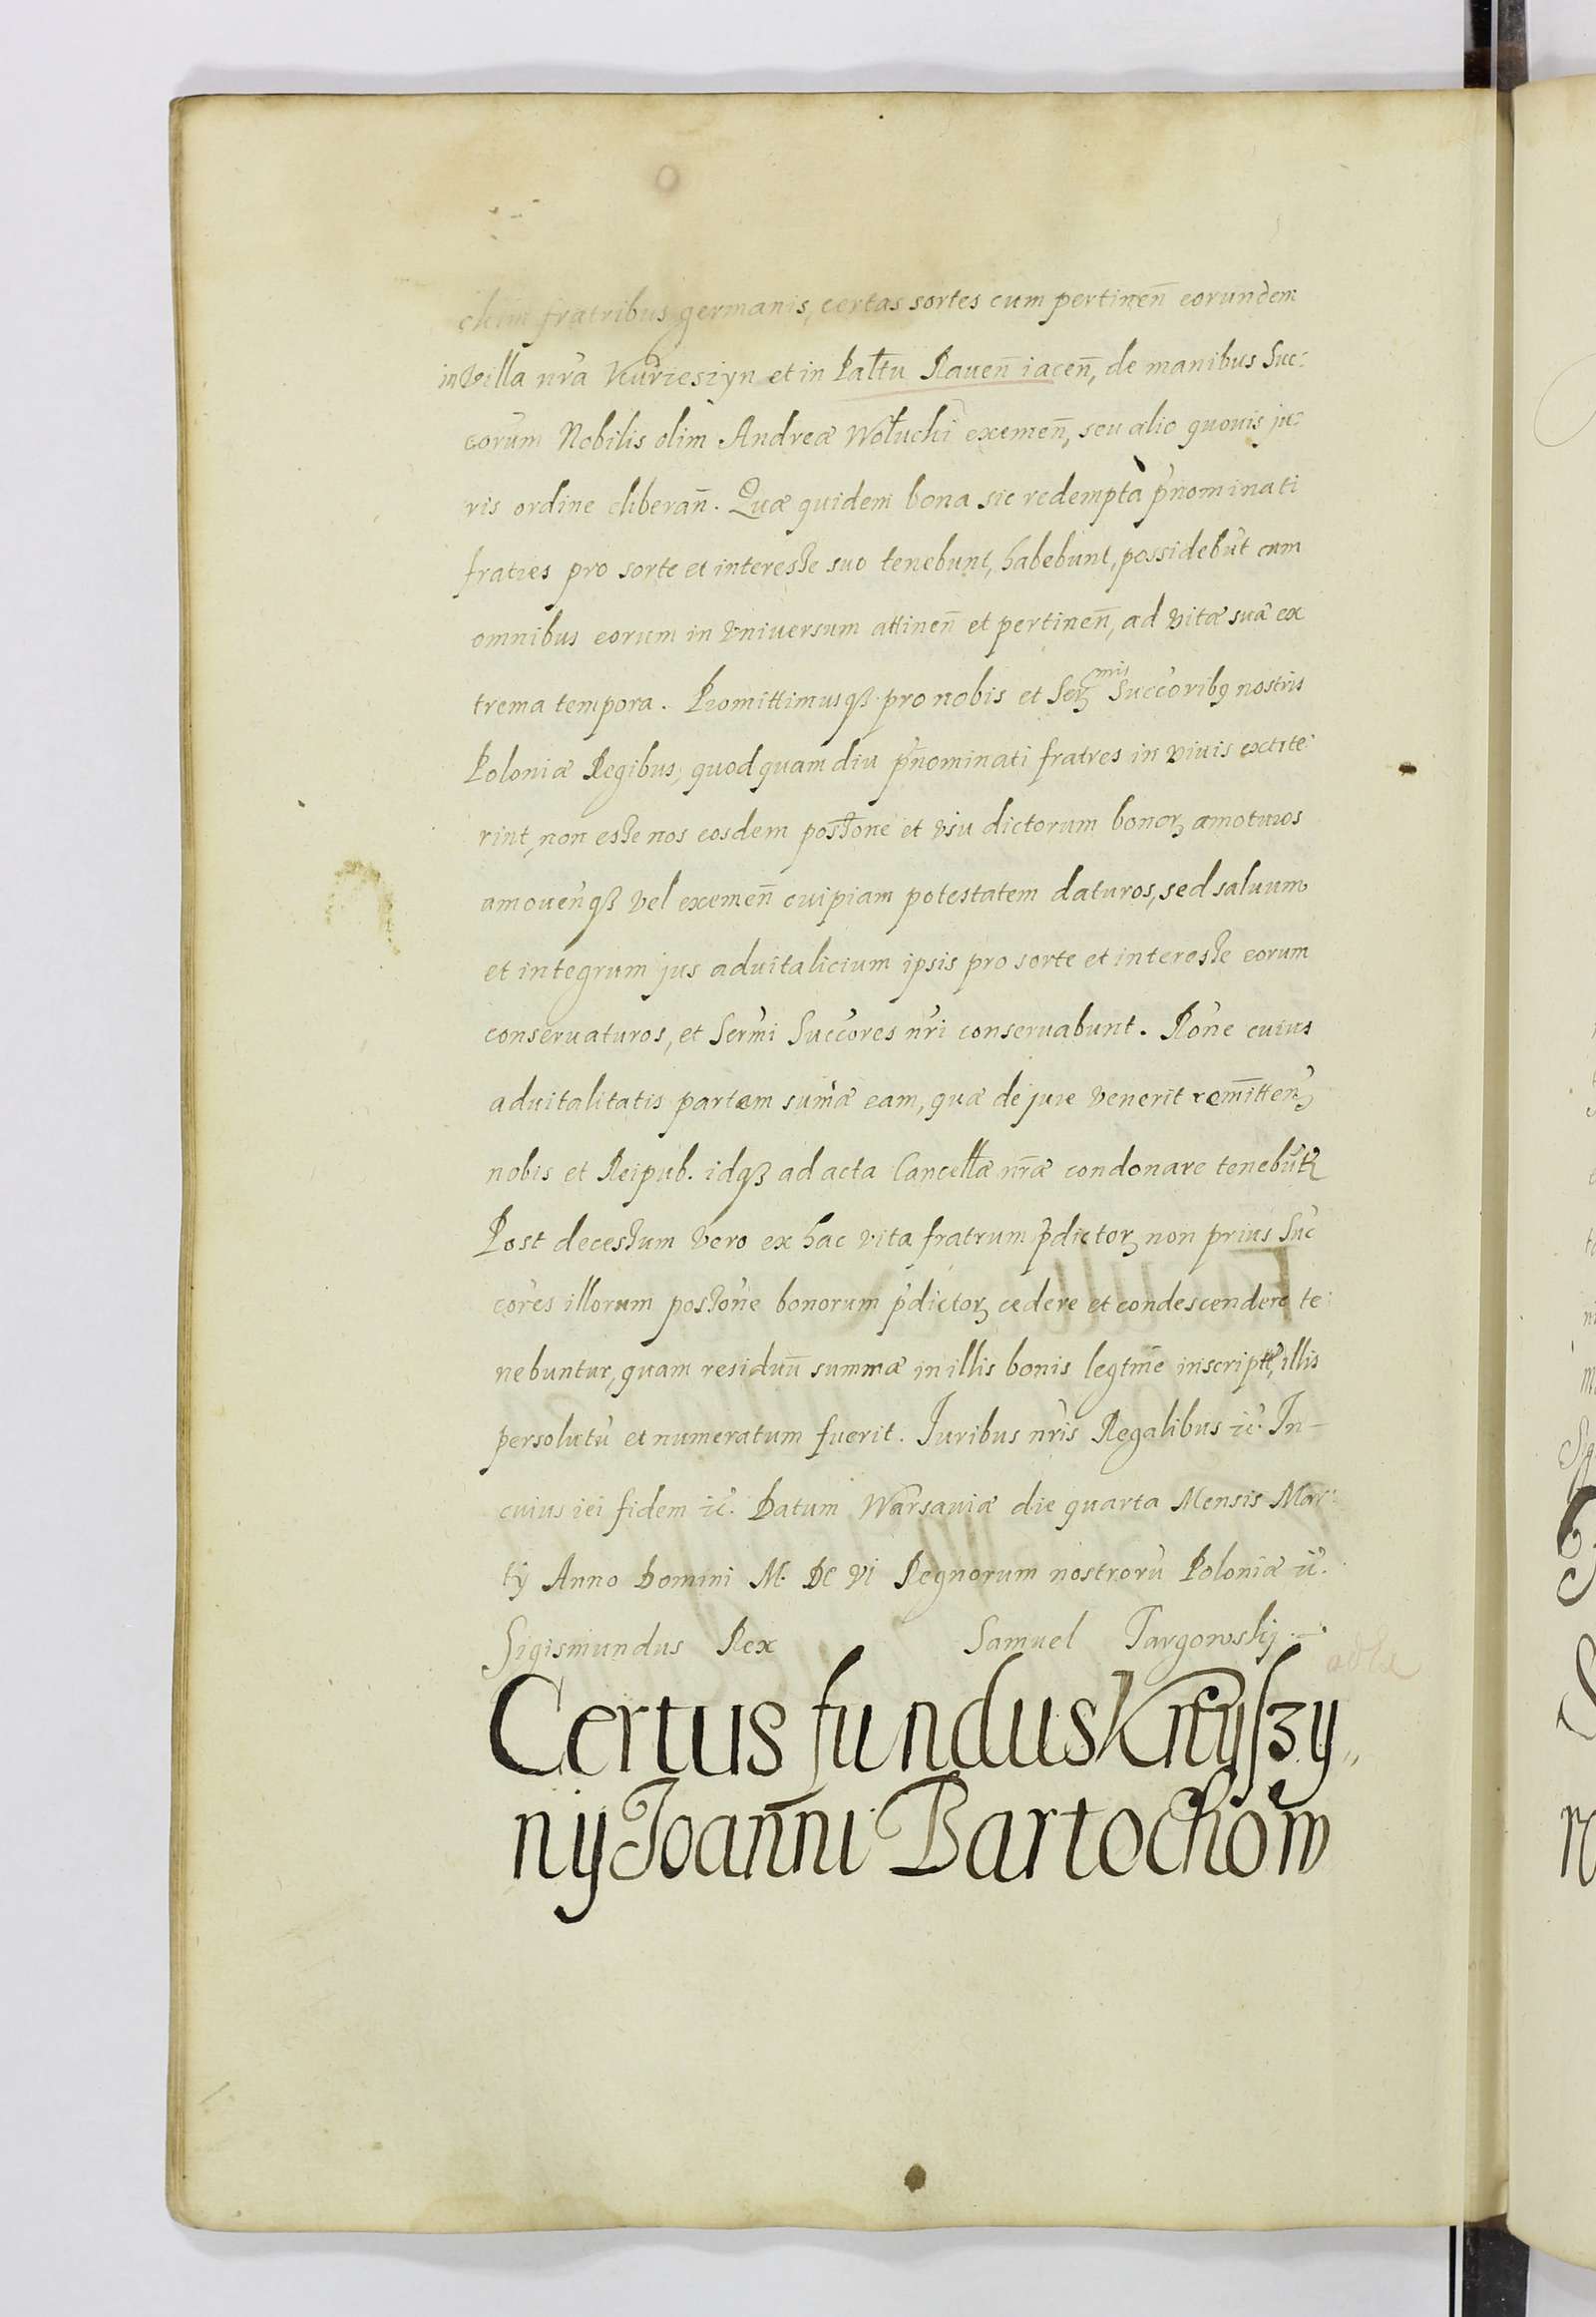 fratribus germanis, certas sortes cum pertinen̄ eorundem
in Villa nr̃a Kurzeszyn et in Pałtu Rauen̄ iacen̄, de manibus Suc:
corum Nobilis olim Andreæ Wołucki exemen̄, seu alio quouis ju:
ris ordine liberan̄. Quæ quidem bona sic redempta p̃nominati
fratres pro sorte et interesse suo tenebunt, habebunt, possidebũt cum
omnibus eorum in Vniversum attinen̄ et pertinen̄, ad vitæ suæ ex
trema tempora. Promittimusqȝ pro nobis et Serᵐⁱˢ Succ̃oribȝ nostris
Poloniæ Regibus, quod quam diu p̃nominati fratres in viuis extite:
rint, non esse nos eosdem poss̃one et vsu dictorum bonoꝝ amoturos
amouen̄qȝ vel exemen̄ cuipiam potestatem daturos, sed saluum
et integrum jus aduitalicium ipsis pro sorte et interesse eorum
conseruaturos, et Serm̃i Succ̃ores nr̃i conseruabunt. Rõne cuius
aduitalitatis partem sum̃æ eam, quæ de jure venerit remitten̄
nobis et Reipub. idqȝ ad acta Cancell̃æ nr̃æ condonare tenebũtꝝ
Post decessum vero ex hac vita fratrum p̃dictoꝝ non prius Suc
cõres illorum possõne bonorum p̃dictoꝝ cedere et condescendere te:
nebuntur, quam residuũ summæ in illis bonis legtm̃e inscriptæ, illis
persolutũ et numeratum fuerit. Juribus nr̃is Regalibus ꝛc̃. In-
cuius rei fidem ꝛc̃. Datum Warsauiæ die quarta Mensis Mar:
tij Anno Domini M. DC VI Regnorum nostrorũ Poloniæ ꝛc̃.
Sigismundus Rex Samuel Targowskj
Certus fundus Knyszy„
nij Joanni Bartochow